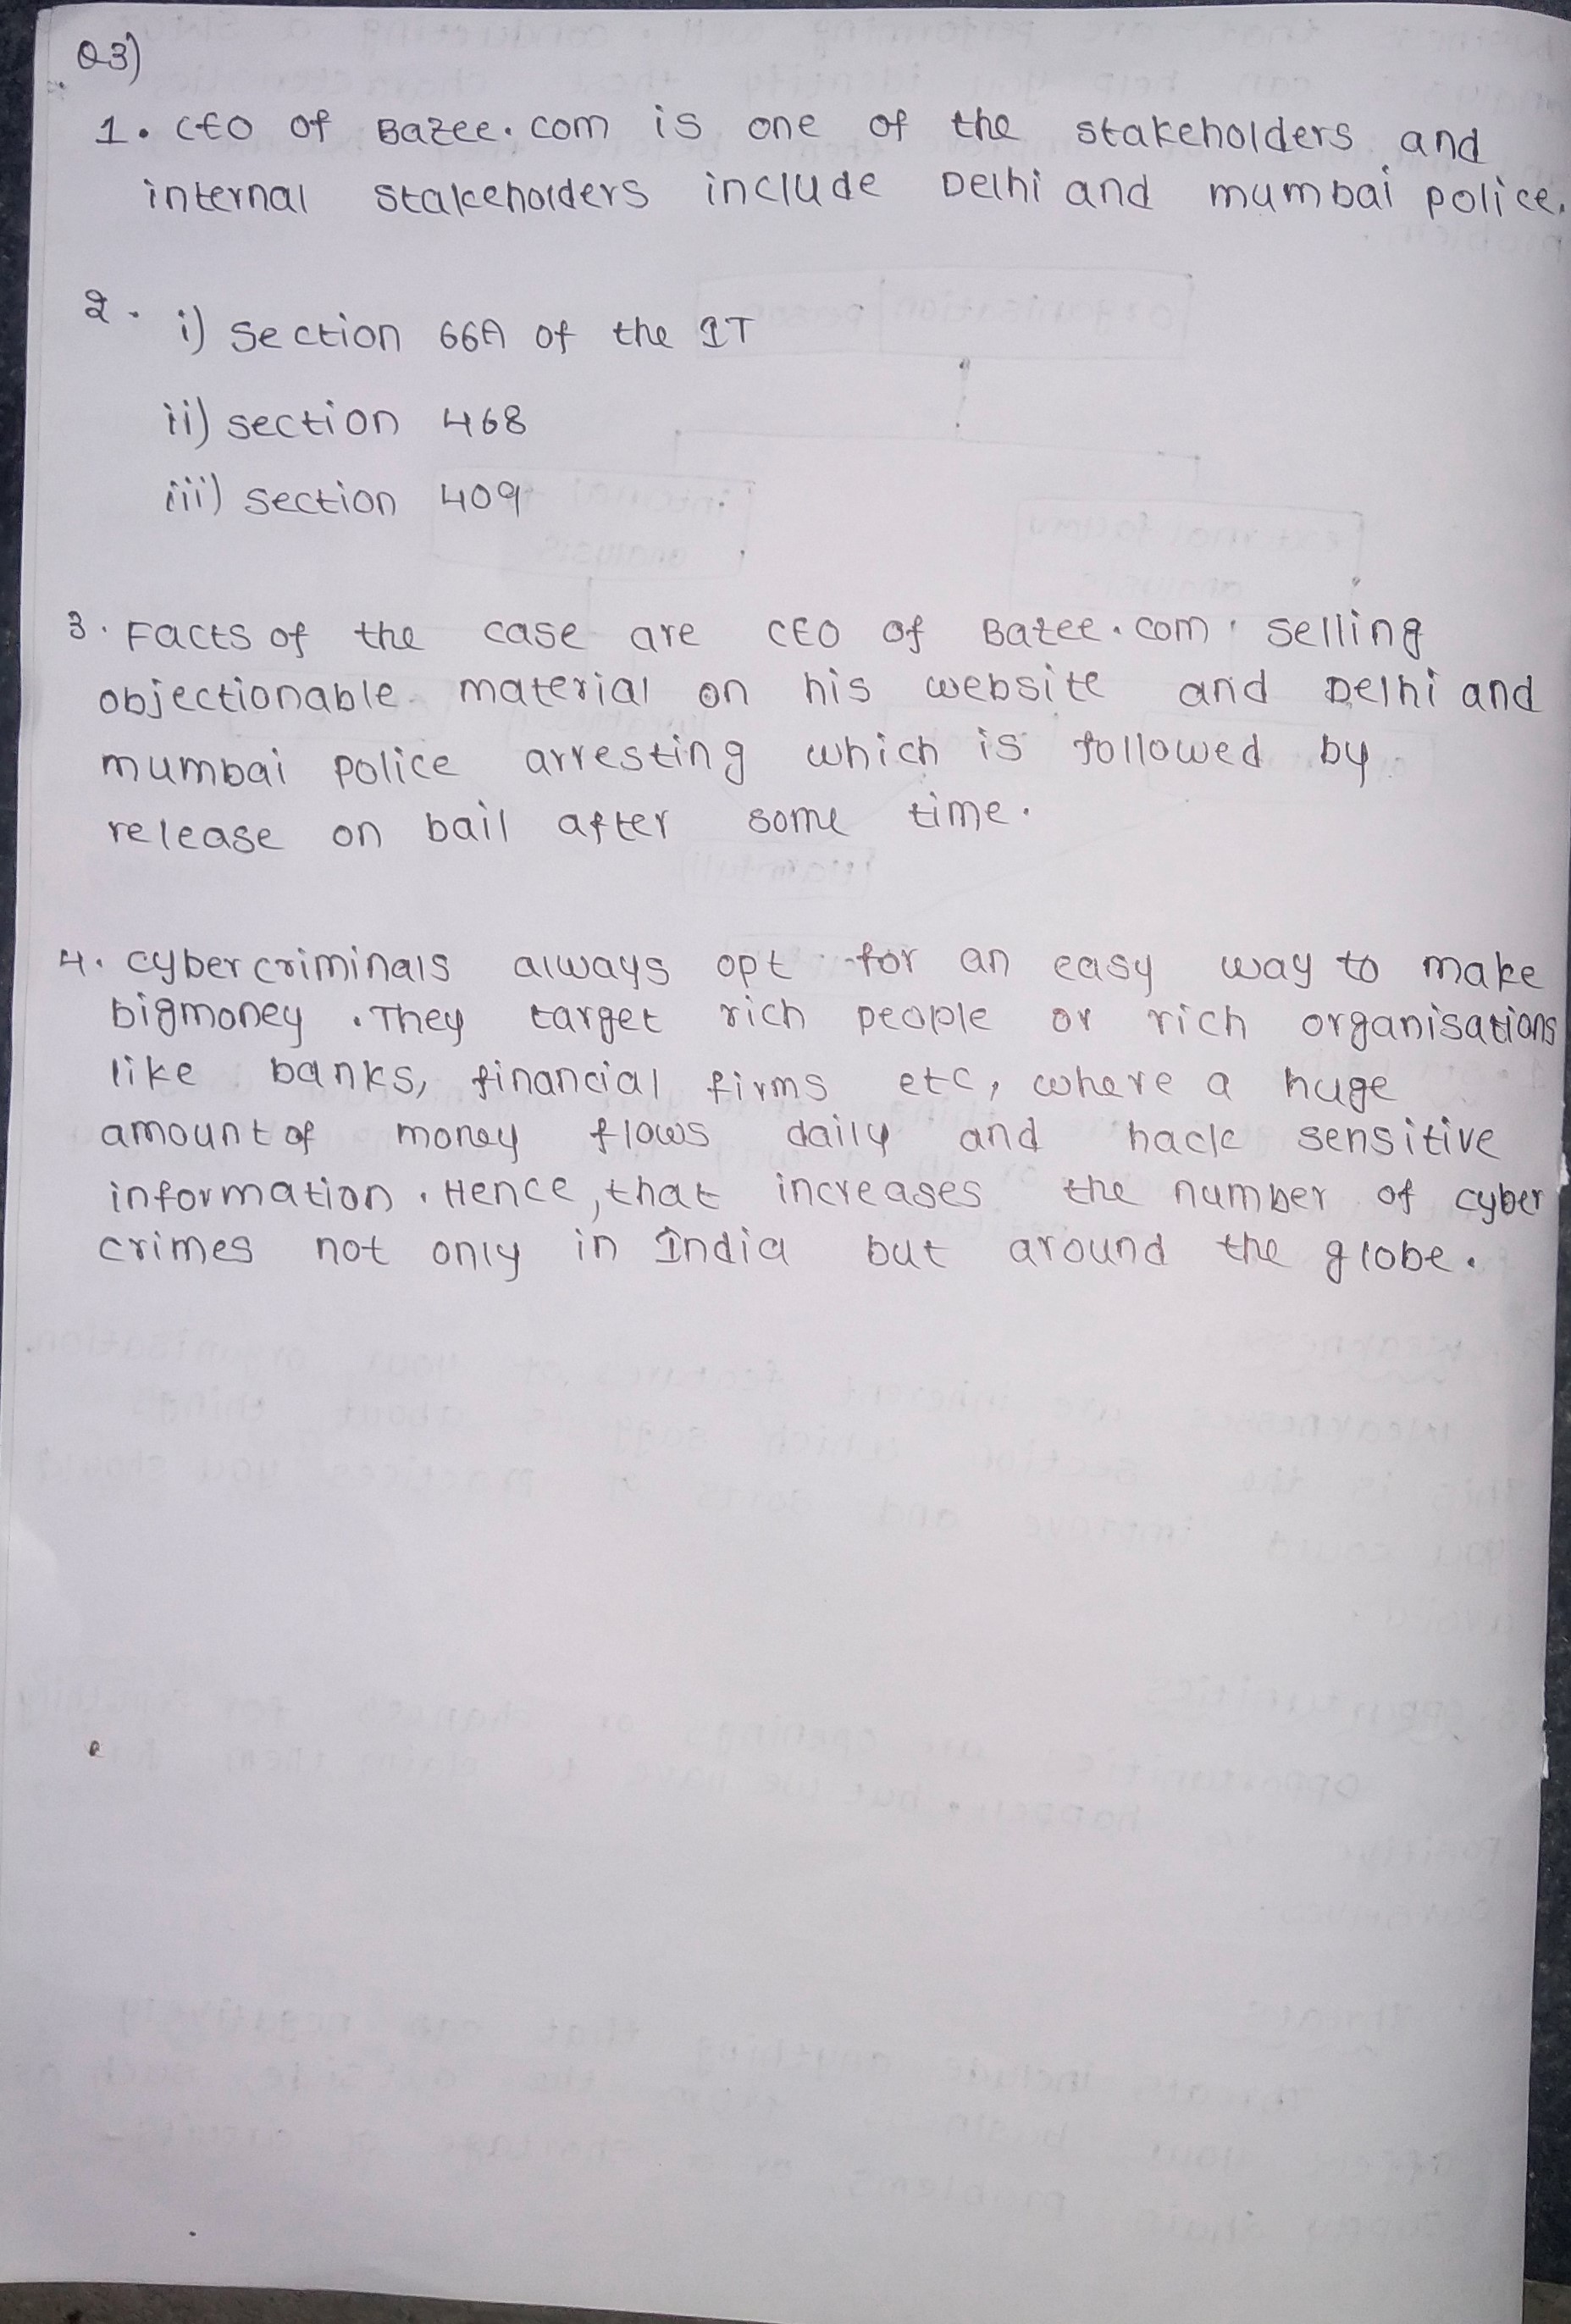 Q3)
1. CEO of Bazee.com is one of the stakeholders and
internal stakeholders include Delhi and mumbai police.
2. i) Section 66A of the IT
ii) section 468
iii) section 409
3. Facts of the case are CEO of Bazee.com selling
objectionable material on his website and Delhi and
mumbai police arresting which is followed by
release on bail after some time.
4. cyber criminals always opt for an easy way to make
bigmoney. They target rich people or rich organisations
like banks, financial firms etc, where a huge
amount of money flows daily and hack sensitive
information. Hence, that increases the number of cyber
crimes not only in India but around the globe.